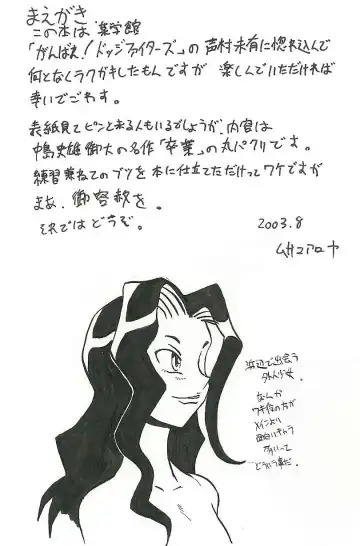 まえがき
この本は 楽学館
「がんばえ!ドッジファイターズ」の 声村未有に惚れ込んで
何となくラクガキしたもんですが 楽しんでいただければ
幸いでごわす。
表紙見てピンと来る人もいるでしょうが、内容は
中島史雄御大の名作「卒業」の丸パクリです。
練習兼ねてのブツを本に仕立てただけってワケですが
まあ、御容赦を。
それではどうぞ。
2003.8
浜辺で出会う
外人少女。
なんか
ワキ役の方が
メインより
面白いキャラ
多いって
どういう事だ。